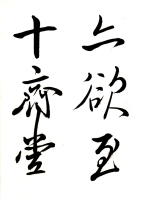 六欲至
十齋堂